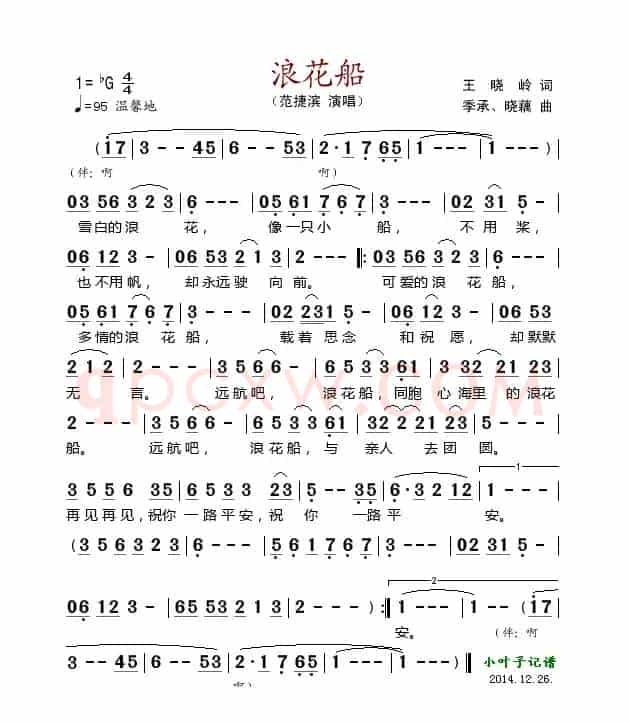 浪花船
1=♭G 4/4
王 晓 岭 词
♩=95 温馨地
(范捷滨 演唱)
季承、晓藕 曲
(i7 | 3 - - 45 | 6 - - 53 | 2· 7 65 | 1 - - - | 1 - - - )
(伴: 啊 啊)
03 56 3 2 3 | 6 - - - | 05 61 7 6 7 | 3 - - - | 02 31 5 - |
雪白的浪 花, 像一只小 船, 不用 桨,
06 12 3 - | 06 53 2 1 3 | 2 - - - ‖: 03 56 3 2 3 | 6 - - - |
也不用帆, 却永远驶 向 前。 可爱的浪 花 船,
05 61 7 6 7 | 3 - - - | 02 02 231 5 | 06 12 3 - | 06 53
多情的浪 花 船, 载着思念 和祝愿, 却默默
2 1 2 | 2 - - - | 3 5 6 6 - | 3 5 6 3 61 | 3 32 21 23
无 言。 远航吧, 浪花船,同胞 心海里 的浪花
2 - - - | 3 5 6 6 - | 3 5 6 3 61 | 3 32 21 23 | 5 - - -
船。 远航吧, 浪花船,与 亲人 去团 圆。
3 5 5 6 35 | 6 5 3 3 23 | 5 - - 35 | 6· 3 2 12 | 1 - - -
再见再见,祝你 一路平安,祝 你 一路平 安。
(3 5 6 3 2 3 | 6 - - - | 05 61 7 6 7 | 3 - - - | 02 31 5 -
06 12 3 - | 65 53 2 1 3 | 2 - - - ) :‖ 1 - - - | 1 - - (i7
安。 (伴: 啊
3 - - 45 | 6 - - 53 | 2 · 7 65 | 1 - - - | 1 - - - )‖
啊)
小叶子记谱
2014.12.26.
qpcxw.COM